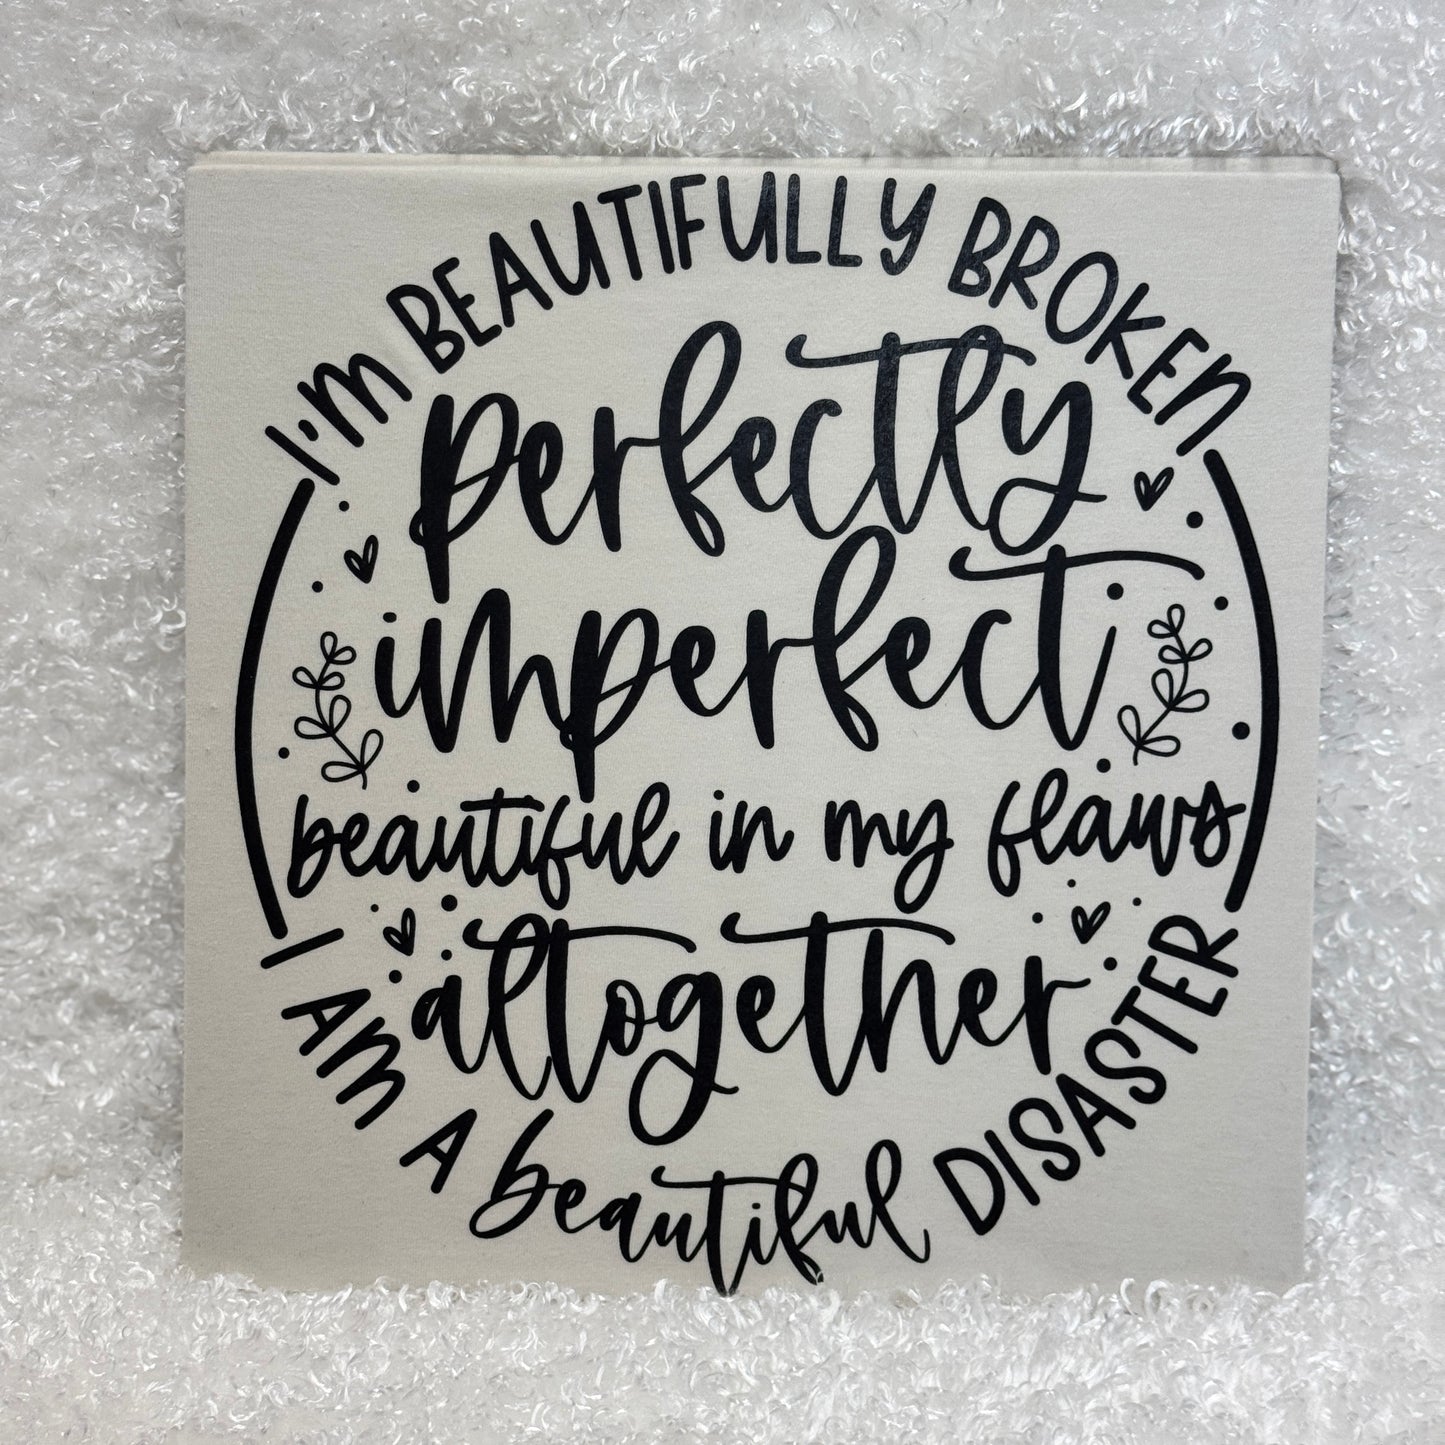 I'M BEAUTIFULLY BROKEN
perfectly
imperfect
beautiful in my flaws
altogether
I AM A beautiful DISASTER